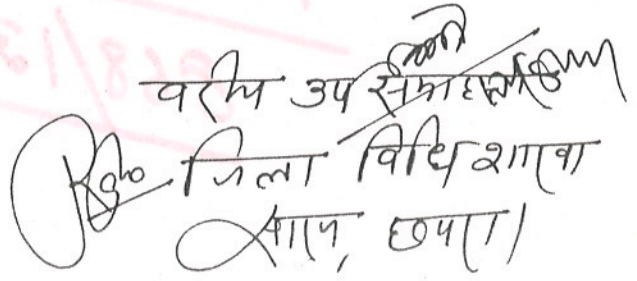 वरीय उप समाहर्ता
जिला विधि शाखा
सारण, छपरा।